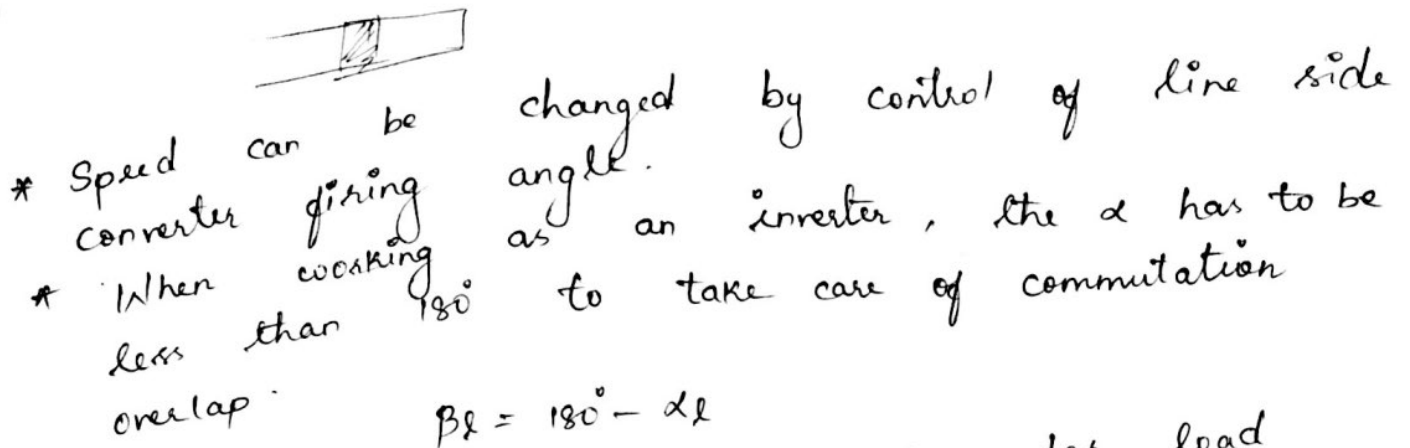 * Speed can be changed by control of line side
converter firing angle.
* When working as an inverter, the α has to be
less than 180° to take care of commutation
overlap.
βl = 180° - αl
load